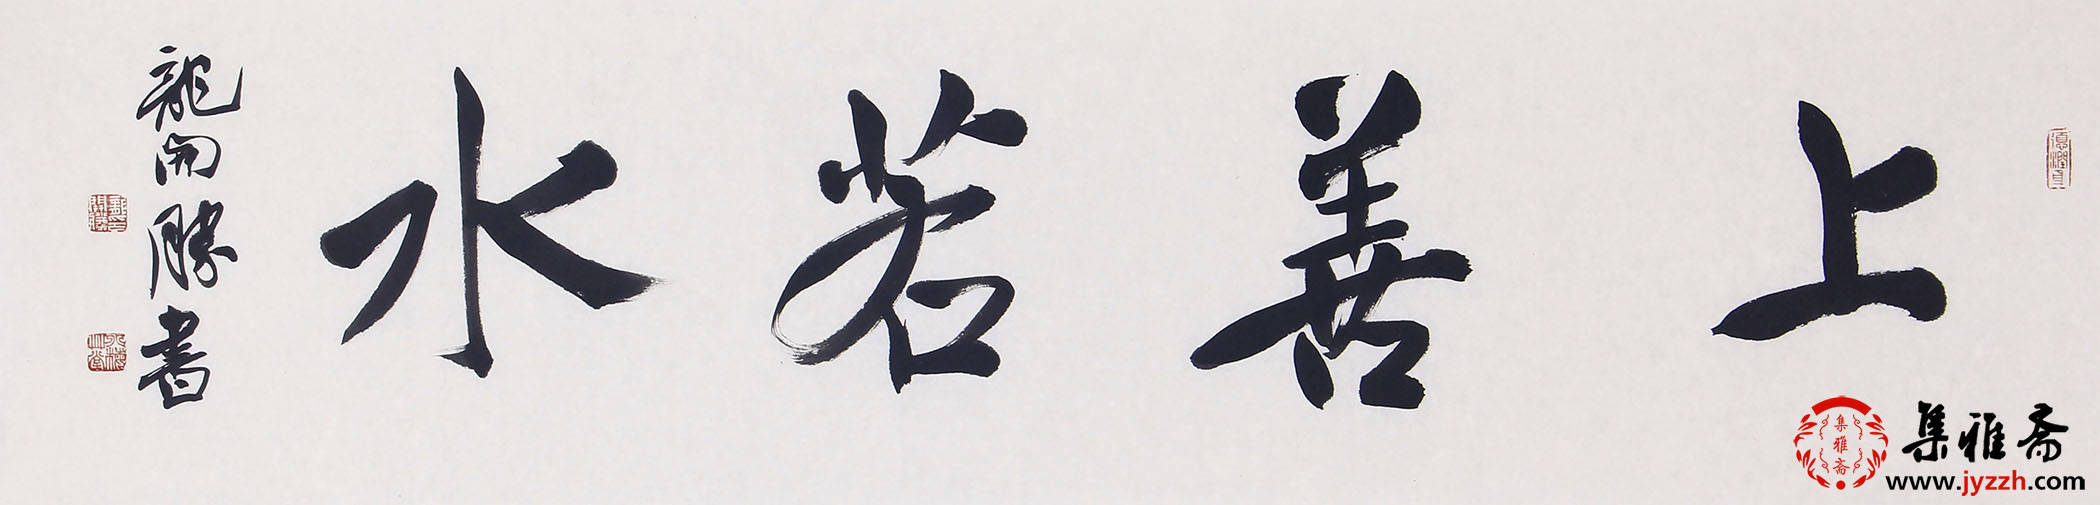 上善若水
龍開勝書
集雅斋
集雅斋
www.jyzzh.com